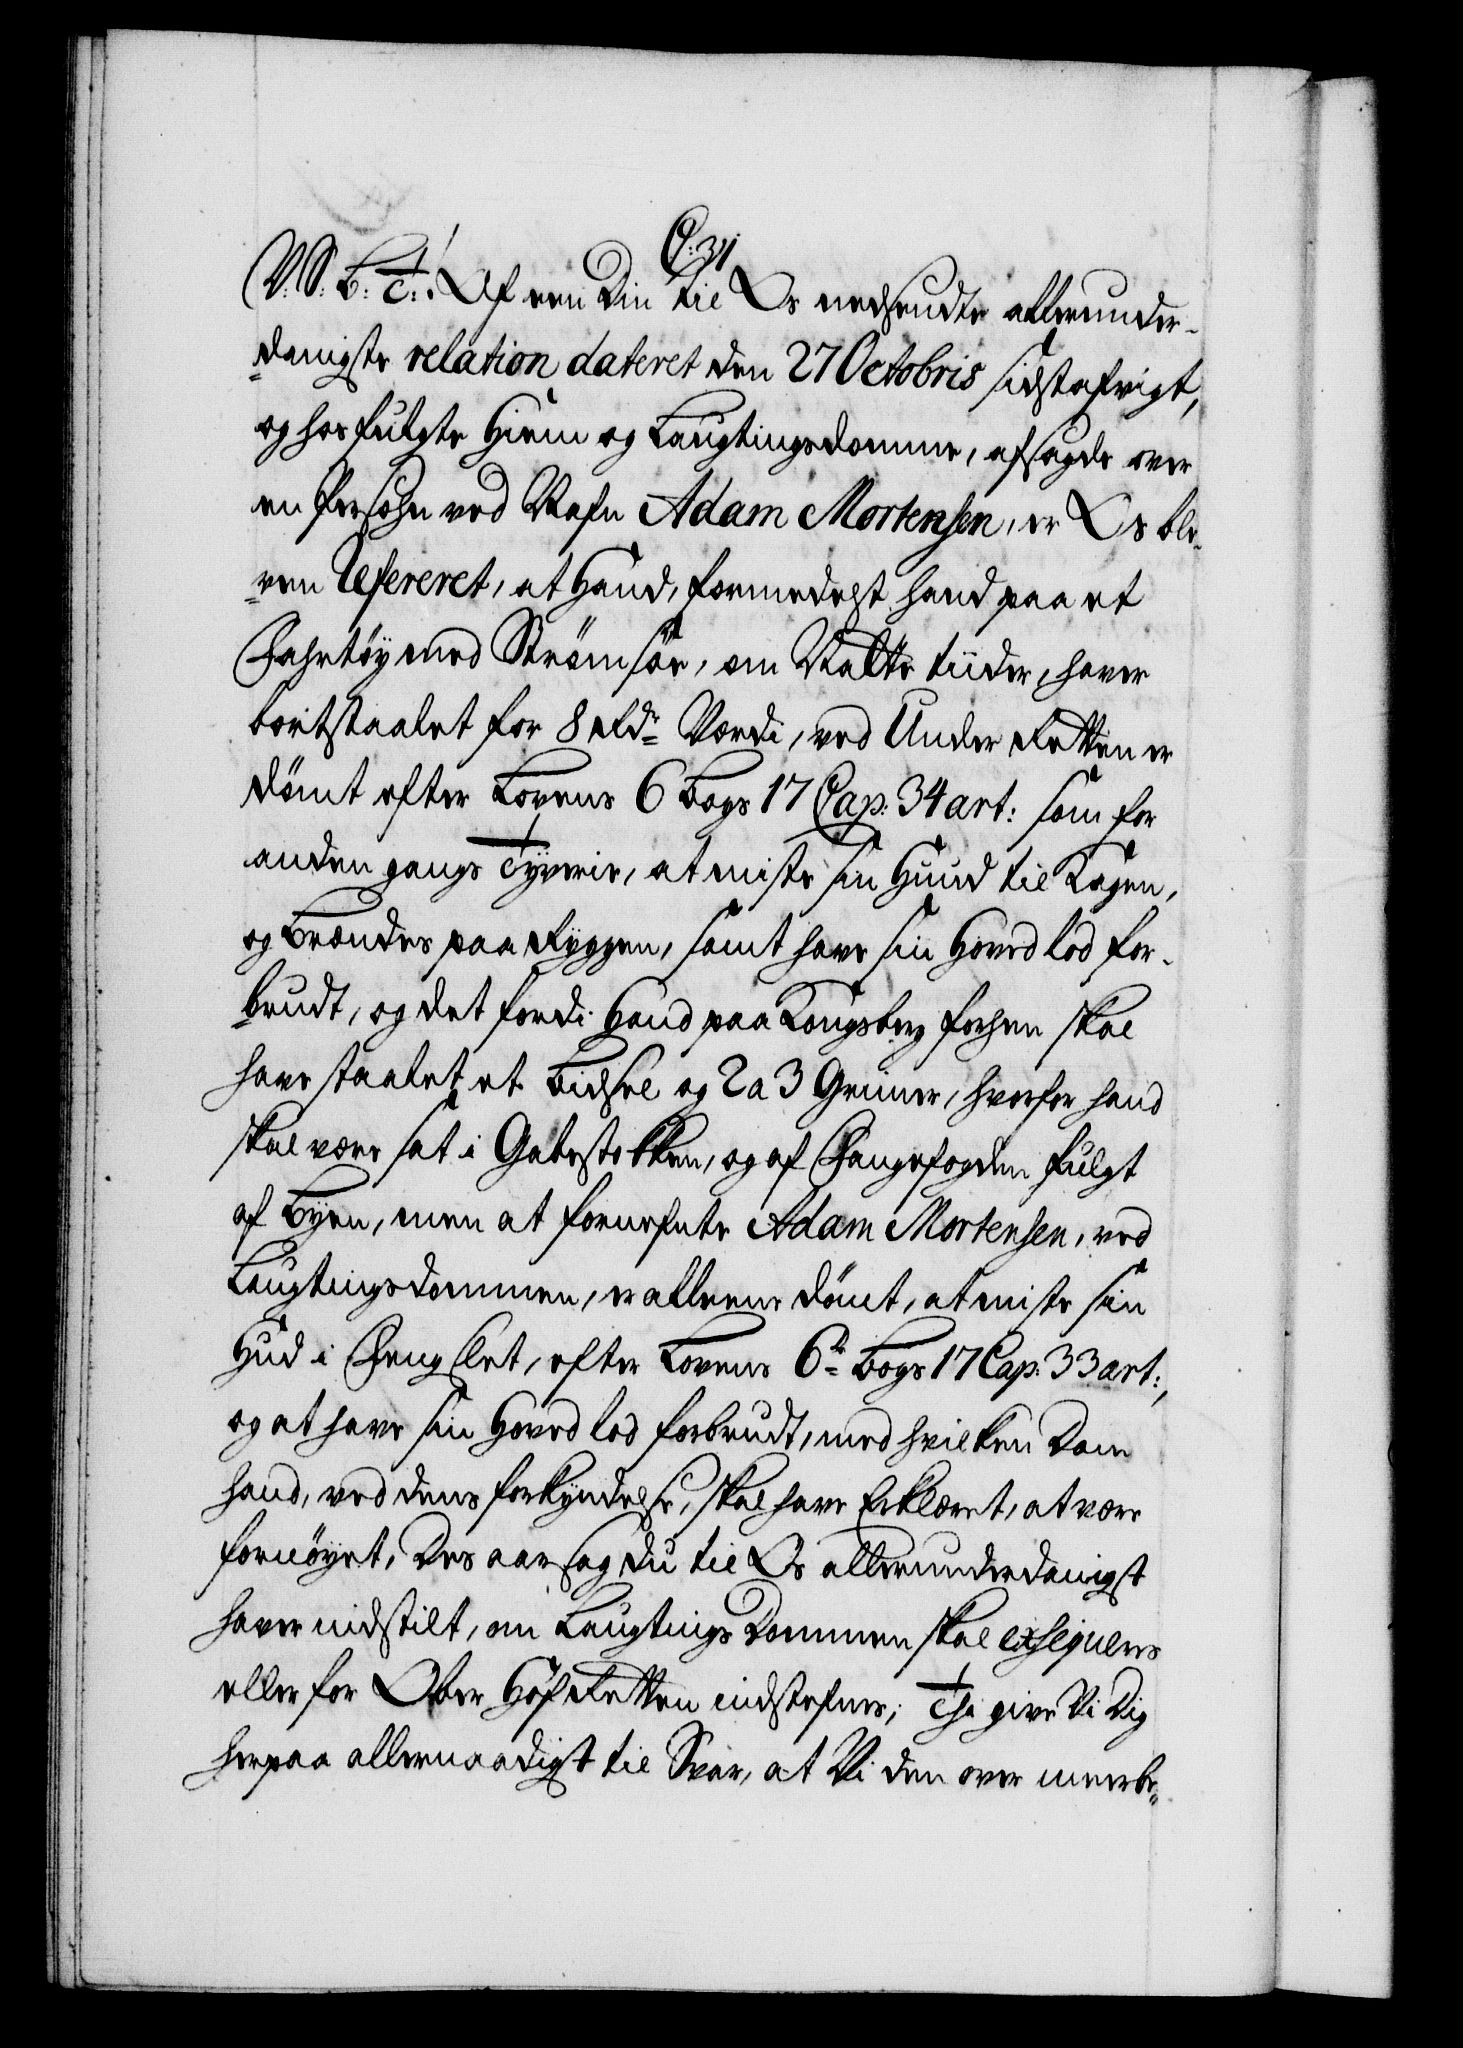 C: 31
V: S: B: T: Af een Din til Os nedsendte allerunder-
danigste relation dateret den 27 Octobris sidstafvigt,
og hosfulgte Hiem og Laugtingsdomme, afsagde over
en Persohn ved Nafn Adam Mortensen, er Os ble-
ven refereret, at Hand, formedelst hand paa et
Fahrtöy med Strømsöe, om Natte tiider, haver
bortstaalet for 8 Rdr Værdi, ved Under Retten er
dömt efter Lovens 6 Bogs 17 Cap: 34 art: som for
anden gangs Tyverie, at miste sin Huud til Kagen,
og Brændes paa Ryggen, samt have sin Hoved lod for-
brudt, og det fordi Hand paa Kongsberg forhen skal
have staalet et Bidsel og 2 a 3 Griimer, hvorfor hand
skal være sat i Gabestokken, og af Fangefogden fulgt
af Byen, men at fornefnte Adam Mortensen, ved
Laugtingsdommen, er alleene dömt, at miste sin
Hud i Fengslet, efter Lovens 6te Bogs 17 Cap: 33 art:,
og at have sin Hoved lod forbrudt, med hvilken Dom
hand, ved dens forkyndelse, skal have Erklæret, at være
fornöyet, Des aarsag du til Os allerunderdanigst
haver indstilt, om Laugtings Dommen skal exseqveres
eller for Ober Hof Retten indstefnes; Thi give Vi Dig
herpaa allernaadigst til Svar, at Vi den over meerbe-